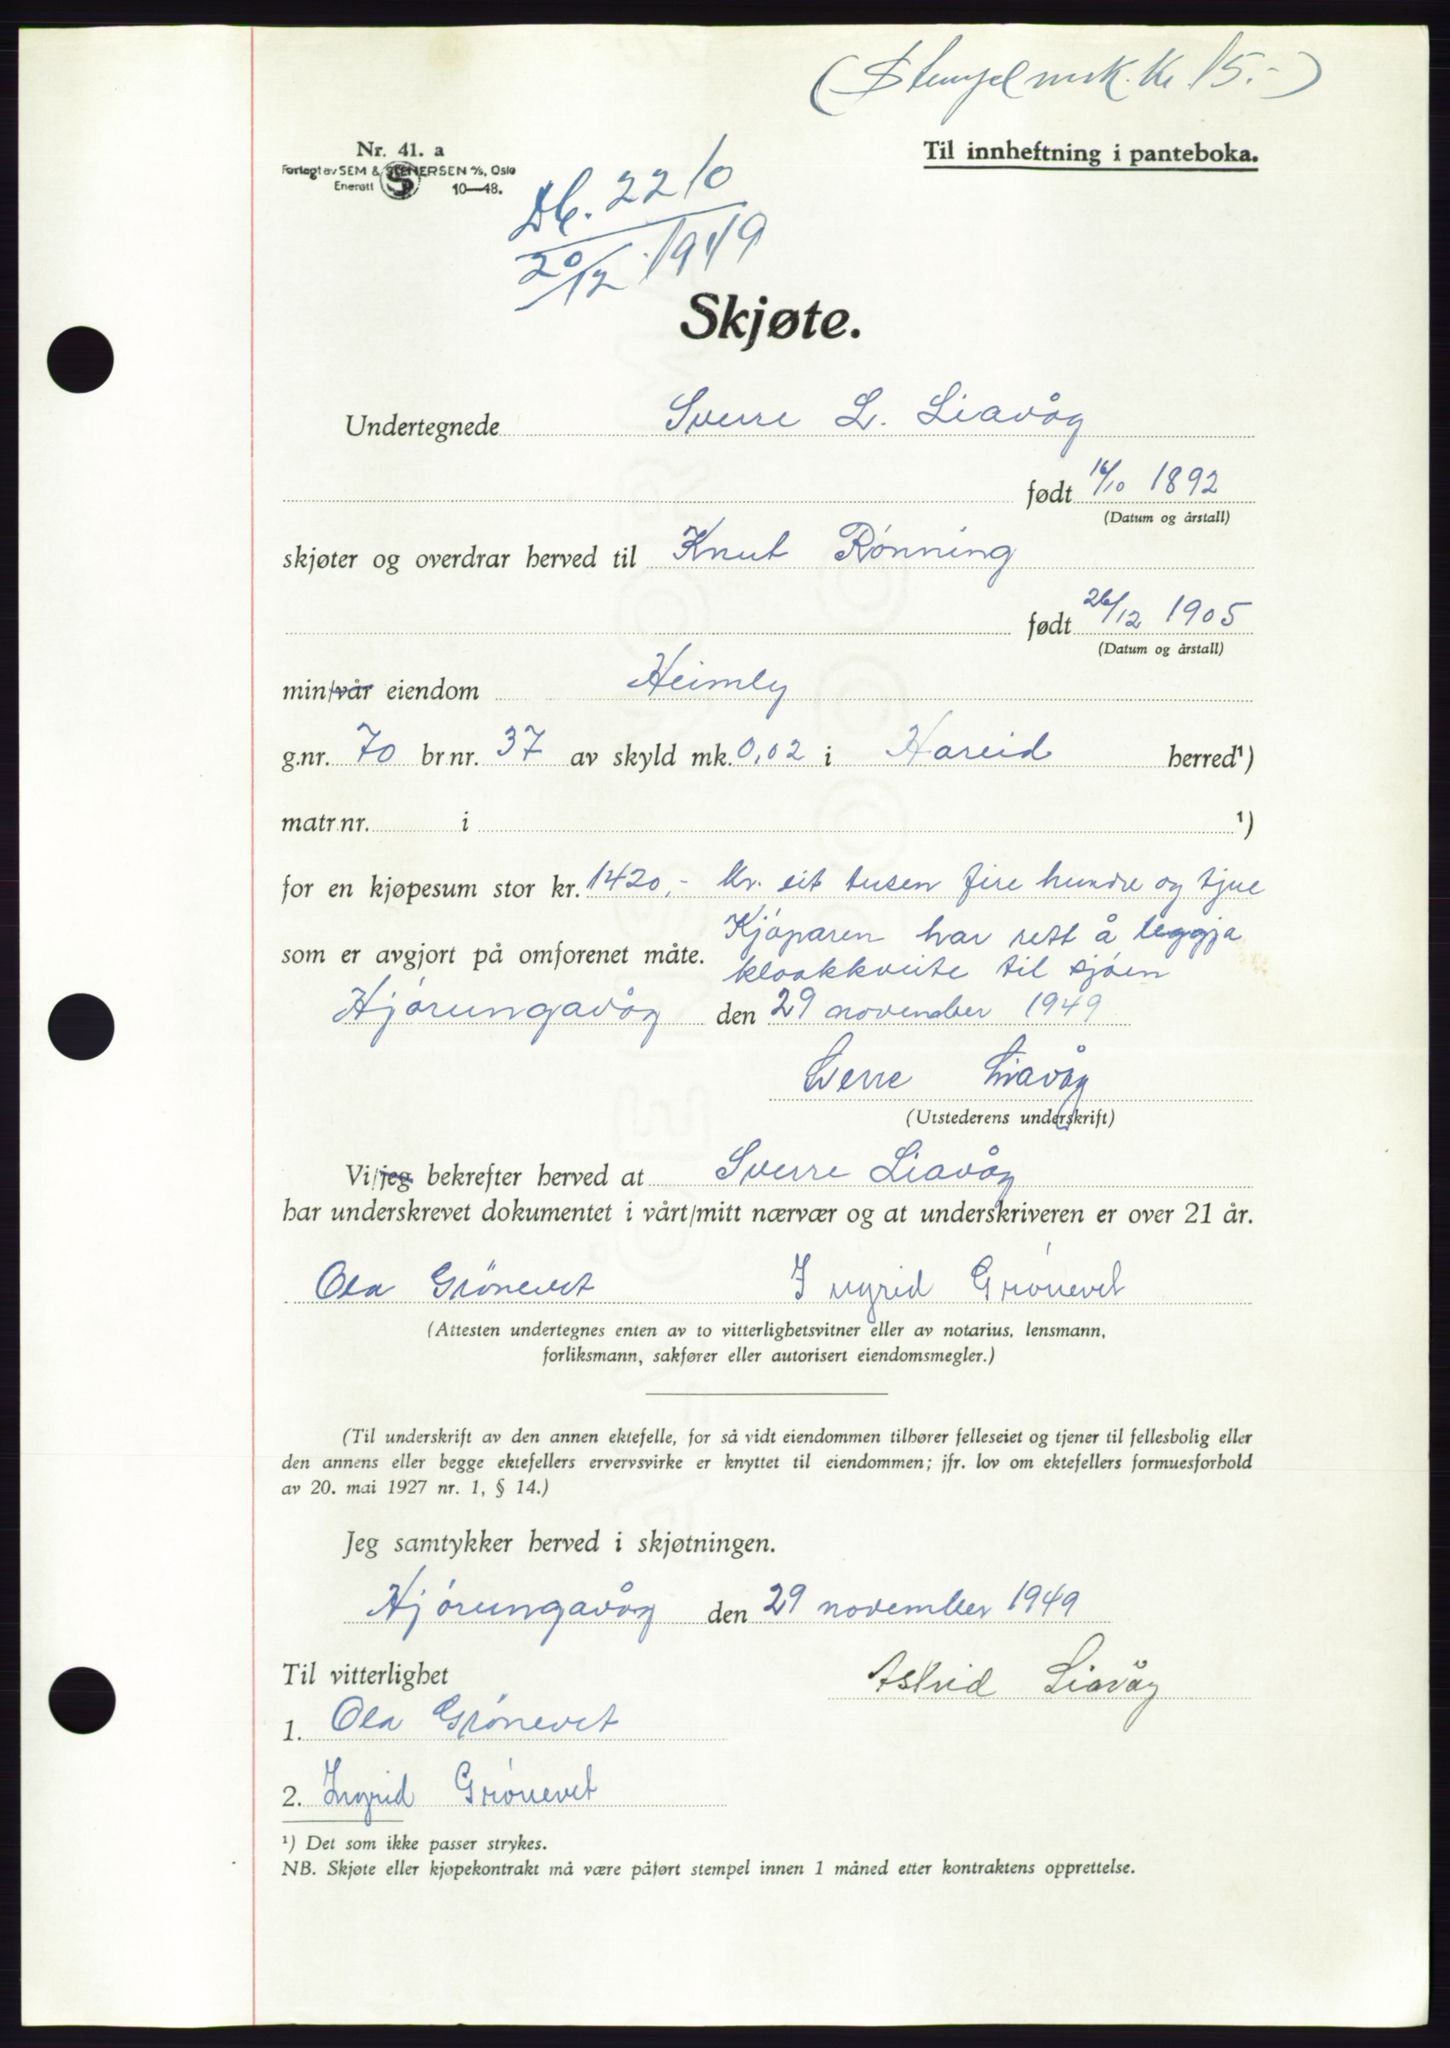 (Stempelmrk. kr. 15.-)
Nr. 41. a
Forlagt av SEM & STENERSEN A/S, Oslo
Enerett 10—48.
Til innheftning i panteboka.
Db. 2210
20/12 1949
Skjøte.
Undertegnede Sverre L. Liavåg
født 16/10 1892
(Datum og årstall)
skjøter og overdrar herved til Knut Rønning
født 26/12 1905
(Datum og årstall)
min/vår eiendom Heimly
g.nr. 70 br.nr. 37 av skyld mk. 0,02 i Hareid herred¹)
matr.nr. i ¹)
for en kjøpesum stor kr. 1420,- kr. eit tusen fire hundre og tjue
som er avgjort på omforenet måte. Kjöparen har rett å leggja
kloakkveite til sjöen
Hjörungavåg den 29 november 1949
Sverre Liavåg
(Utstederens underskrift)
Vi/jeg bekrefter herved at Sverre Liavåg
har underskrevet dokumentet i vårt/mitt nærvær og at underskriveren er over 21 år.
Ola Grönevet Ingrid Grönevet
(Attesten undertegnes enten av to vitterlighetsvitner eller av notarius, lensmann,
forliksmann, sakfører eller autorisert eiendomsmegler.)
(Til underskrift av den annen ektefelle, for så vidt eiendommen tilhører felleseiet og tjener til fellesbolig eller
den annens eller begge ektefellers ervervsvirke er knyttet til eiendommen; jfr. lov om ektefellers formuesforhold
av 20. mai 1927 nr. 1, § 14.)
Jeg samtykker herved i skjøtningen.
Hjörungavåg den 29 november 1949
Til vitterlighet
Astrid Liavåg
1. Ola Grönevet
2. Ingrid Grönevet
¹) Det som ikke passer strykes.
NB. Skjøte eller kjøpekontrakt må være påført stempel innen 1 måned etter kontraktens opprettelse.